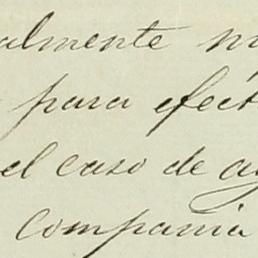 almente
para efect
el caso de
compania